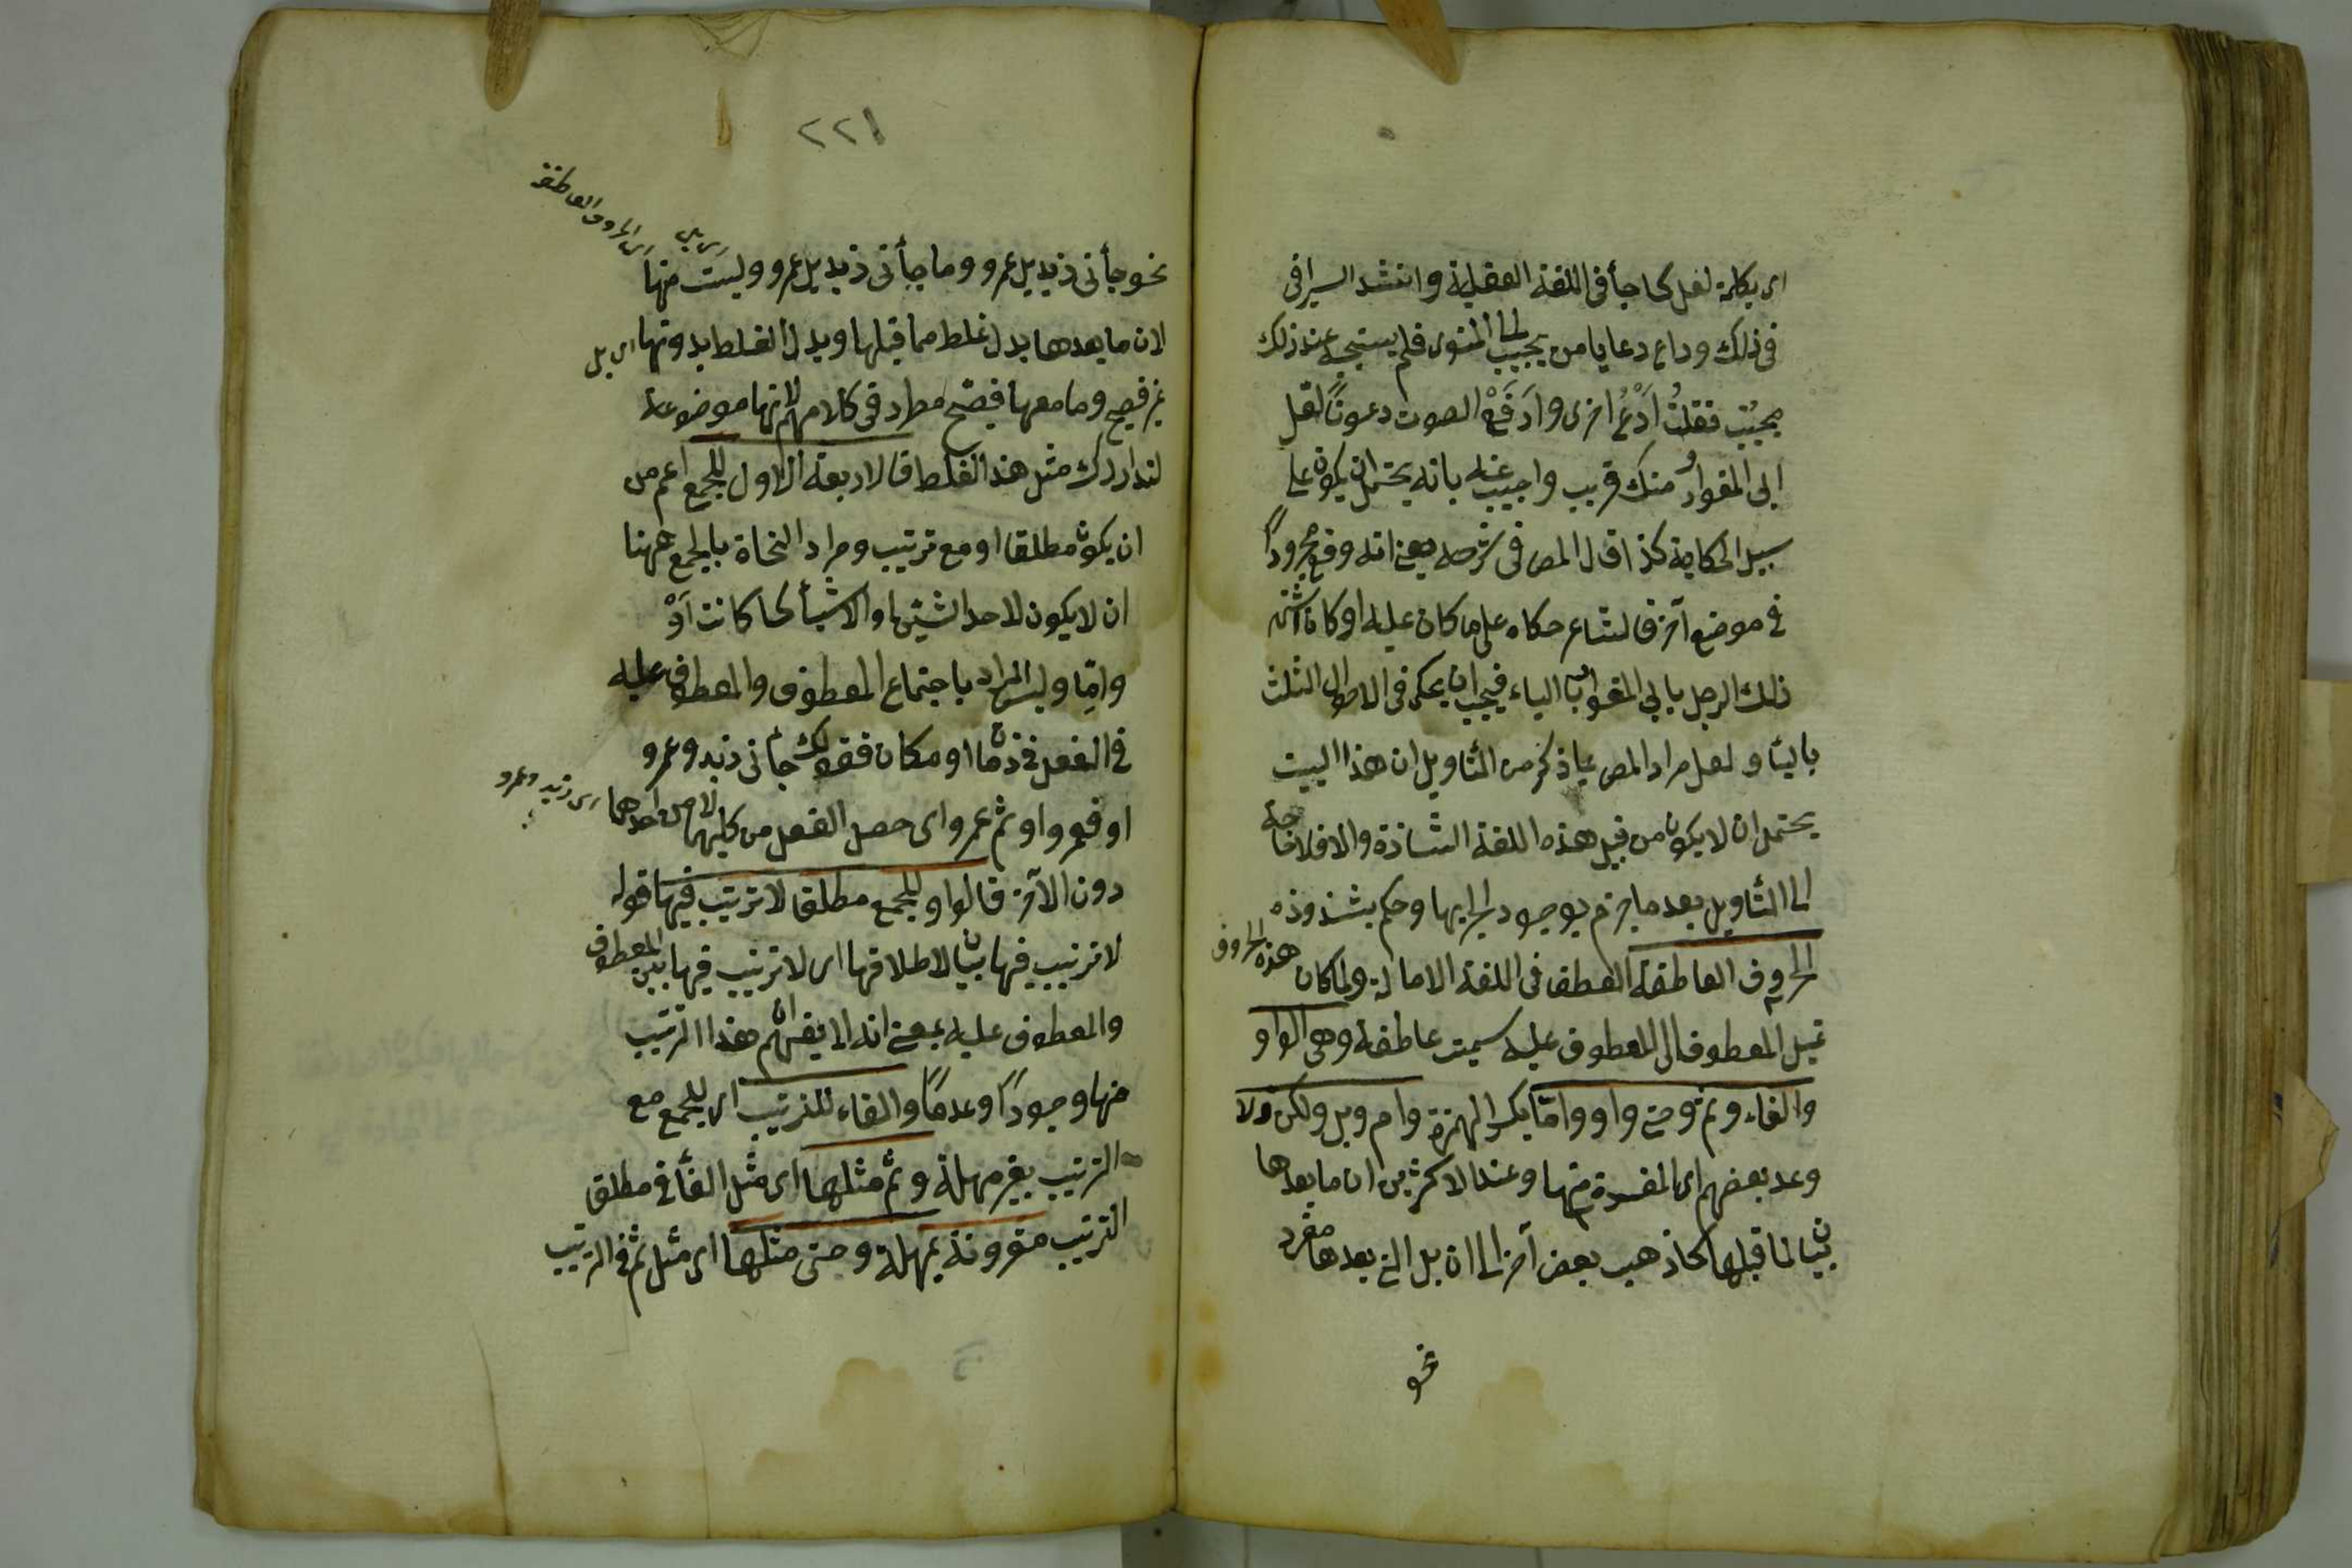 اى بكلمة لعل كما جأ فى اللغة العقيلية وانشد السيرافى
فى ذلك وداع دعا يا من يجيب الى الندى فلم يستجبه عند ذلك
مجيب فقلتُ اُدْعُ اخرى واَرفَعْ الصوت دعوةً لعل
ابى المغوار منك قريب واجيب عنه بانه يحتمل ان يكون على
سبيل الحكاية كذا قال المص فى شرحه يعنى انه وقع مجرورًا
فى موضع آخر فالشاعر حكاه على ما كان عليه او كان اشتهر
ذلك الرجل بابى المغوار بالياء فيجب ان يحكى فى الاحوال الثلث
بالياء ولعل مراد المص بما ذكر من التأويل ان هذا البيت
يحتمل ان لا يكون من قبيل هذه اللغة الشاذة والا فلا حاجة
الى التأويل بعد ما جزم بوجود الجر بها وحكم بشذوذه
الحروف العاطفة العطف فى اللغة الامالة ولما كان هذه الحروف
تميل المعطوف الى المعطوف عليه سميت عاطفة وهى الواو
والفاء وثم وحتى واو واما بكسر الهمزة وام وبل ولكن ولا
وعد بعضهم اى المفسرة منها وعند الاكثرين ان ما بعدها
بيان لما قبلها كما ذهب بعض آخر الى ان بل التى بعدها مفرد
نحو
٢٢١
اى من الحروف العاطفة
اى بل
نحو جأنى زيد بل عمرو وما جأنى زيد بل عمرو وليست منها
لان ما بعدها بدل غلط مما قبلها وبدل الغلط بدونها اى بل
غير فصيح وما معها ففصيح مطرد فى كلامهم لانها موضوعة
لتدارك مثل هذا الغلط فالاربعة الاول للجمع اعم من
ان يكون مطلقا او مع ترتيب ومراد النحاة بالجمع ههنا
ان لا يكون لاحد الشيئين او الاشيأ كما كانت اَوْ
وامّا وليس المراد باجتماع المعطوف والمعطوف عليه
فى الفعل فى زمان او مكان فقولك جأنى زيد وعمرو
او فعمرو او ثم عمرو اى حصل الفعل من كليهما لا من احدهما اى زيد وعمرو
دون الآخر فالواو للجمع مطلقا لا ترتيب فيها قوله
لا ترتيب فيها بيان لاطلاقها اى لا ترتيب فيها بين المعطوف
والمعطوف عليه بمعنى انه لا يفهم هذا الترتيب
منها وجودًا وعدمًا والفاء للترتيب اى للجمع مع
الترتيب بغير مهلة وثم مثلها اى مثل الفأ فى مطلق
الترتيب مقرونة بمهلة وحتى مثلها اى مثل ثم فى الترتيب